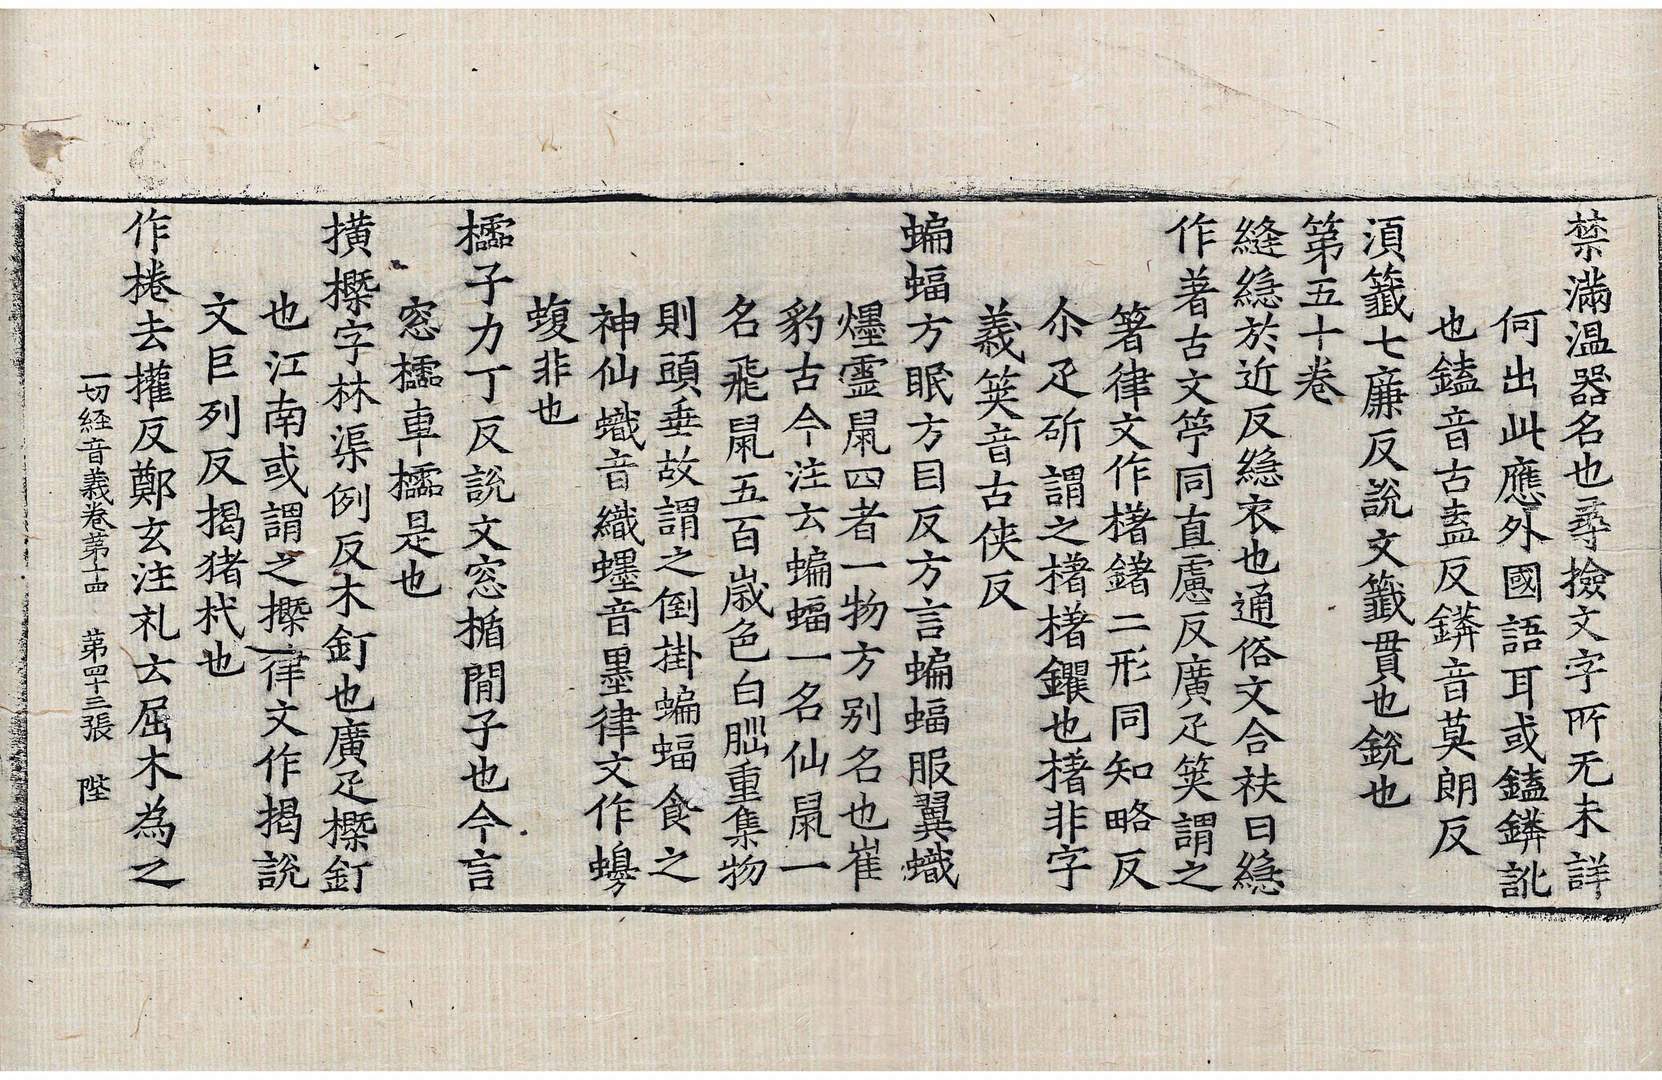 禁滿温器名也尋撿文字所无未詳
何出此應外國語耳或鎑鏻訛
也鎑音古盍反鏻音莫朗反
湏籤七廉反說文籤貫也銳也
第五十卷
縫緦於近反緦衣也通俗文合袟曰緦
作著古文竚同直慮反廣疋筴謂之
箸律文作櫡鐯二形同知略反
尒疋斫謂之櫡櫡钁也櫡非字
義筴音古俠反
蝙蝠方眠方目反方言蝙蝠服翼蟙
𧓈靈鼠四者一物方别名也崔
豹古今注云蝙蝠一名仙鼠一
名飛鼠五百歲色白腦重集物
則頭垂故謂之倒掛蝙蝠食之
神仙蟙音織䘃音墨律文作蝣
蝮非也
櫺子力丁反說文窓楯閒子也今言
窓櫺車櫺是也
橫檪字林渠例反木釘也廣疋檪釘
也江南或謂之檪律文作揭說
文巨列反揭猪杙也
作棬去㩲反鄭玄注礼云屈木為之
一切経音義卷苐十四 第四十三張 陛